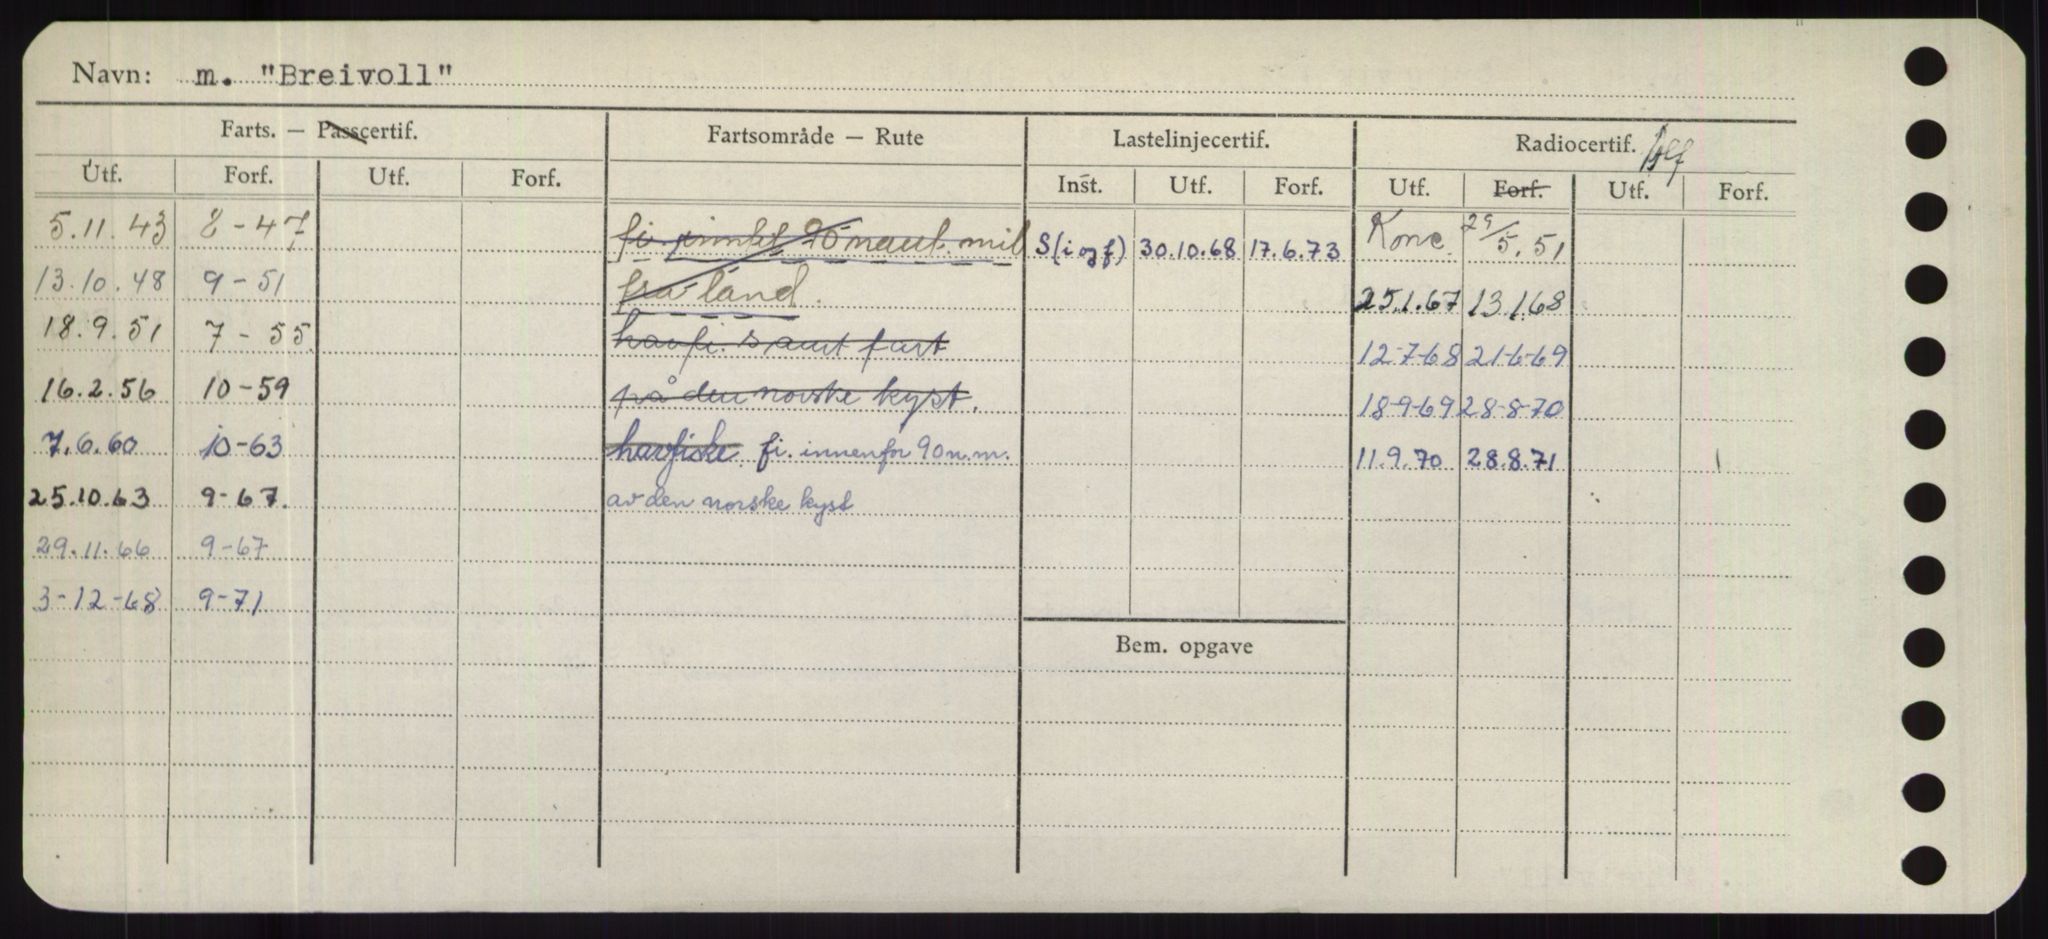 Navn: m. "Breivoll"
Farts. — Passcertif. Fartsområde — Rute Lastelinjecertif. Radiocertif. tlf
Utf. Forf. Utf. Forf. Inst. Utf. Forf. Utf. Forf. Utf. Forf.
5.11.43 8-47 fi. 90 naut. mil S(i og f) 30.10.68 17.6.73 Konc. 29/5.51
13.10.48 9-51 fra land. 25.1.67 13.1.68
18.9.51 7-55 havfi. samt fart 12-7-68 21-6-69
16.2.56 10-59 på den norske kyst. 18-9-69 28-8-70
7.6.60 10-63 havfiske. fi. innenfor 90 n.m. 11.9.70 28.8.71
25.10.63 9-67. av den norske kyst
29.11.66 9-67
3-12-68 9-71
Bem. opgave